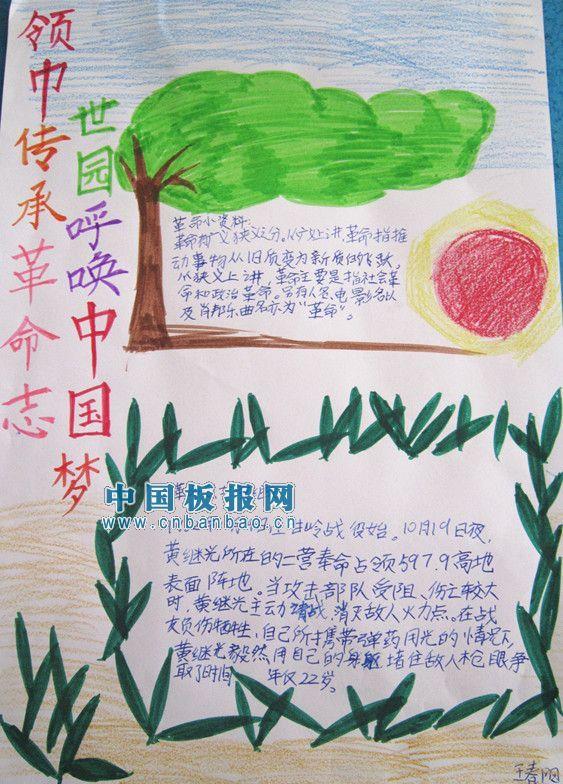 领巾传承革命志
世园呼唤中国梦
革命小资料:
革命有广义狭义之分。从广义上讲,革命指推
动事物从旧质变为新质的飞跃。
从狭义上讲,革命主要是指社会革
命和政治革命。另有人名、电影名以
及肖邦乐曲名亦为“革命”。
中国板报网
www.cnbanbao.cn
岭战役始。10月19日夜,
黄继光所在的二营奉命占领597.9高地
表面阵地。当攻击部队受阻、伤亡较大
时,黄继光主动请战,消灭敌人火力点。在战
友负伤牺牲,自己所携带弹药用光的情况下,
黄继光毅然用自己的身躯堵住敌人枪眼争
取了时间 年仅22岁。
王春阳